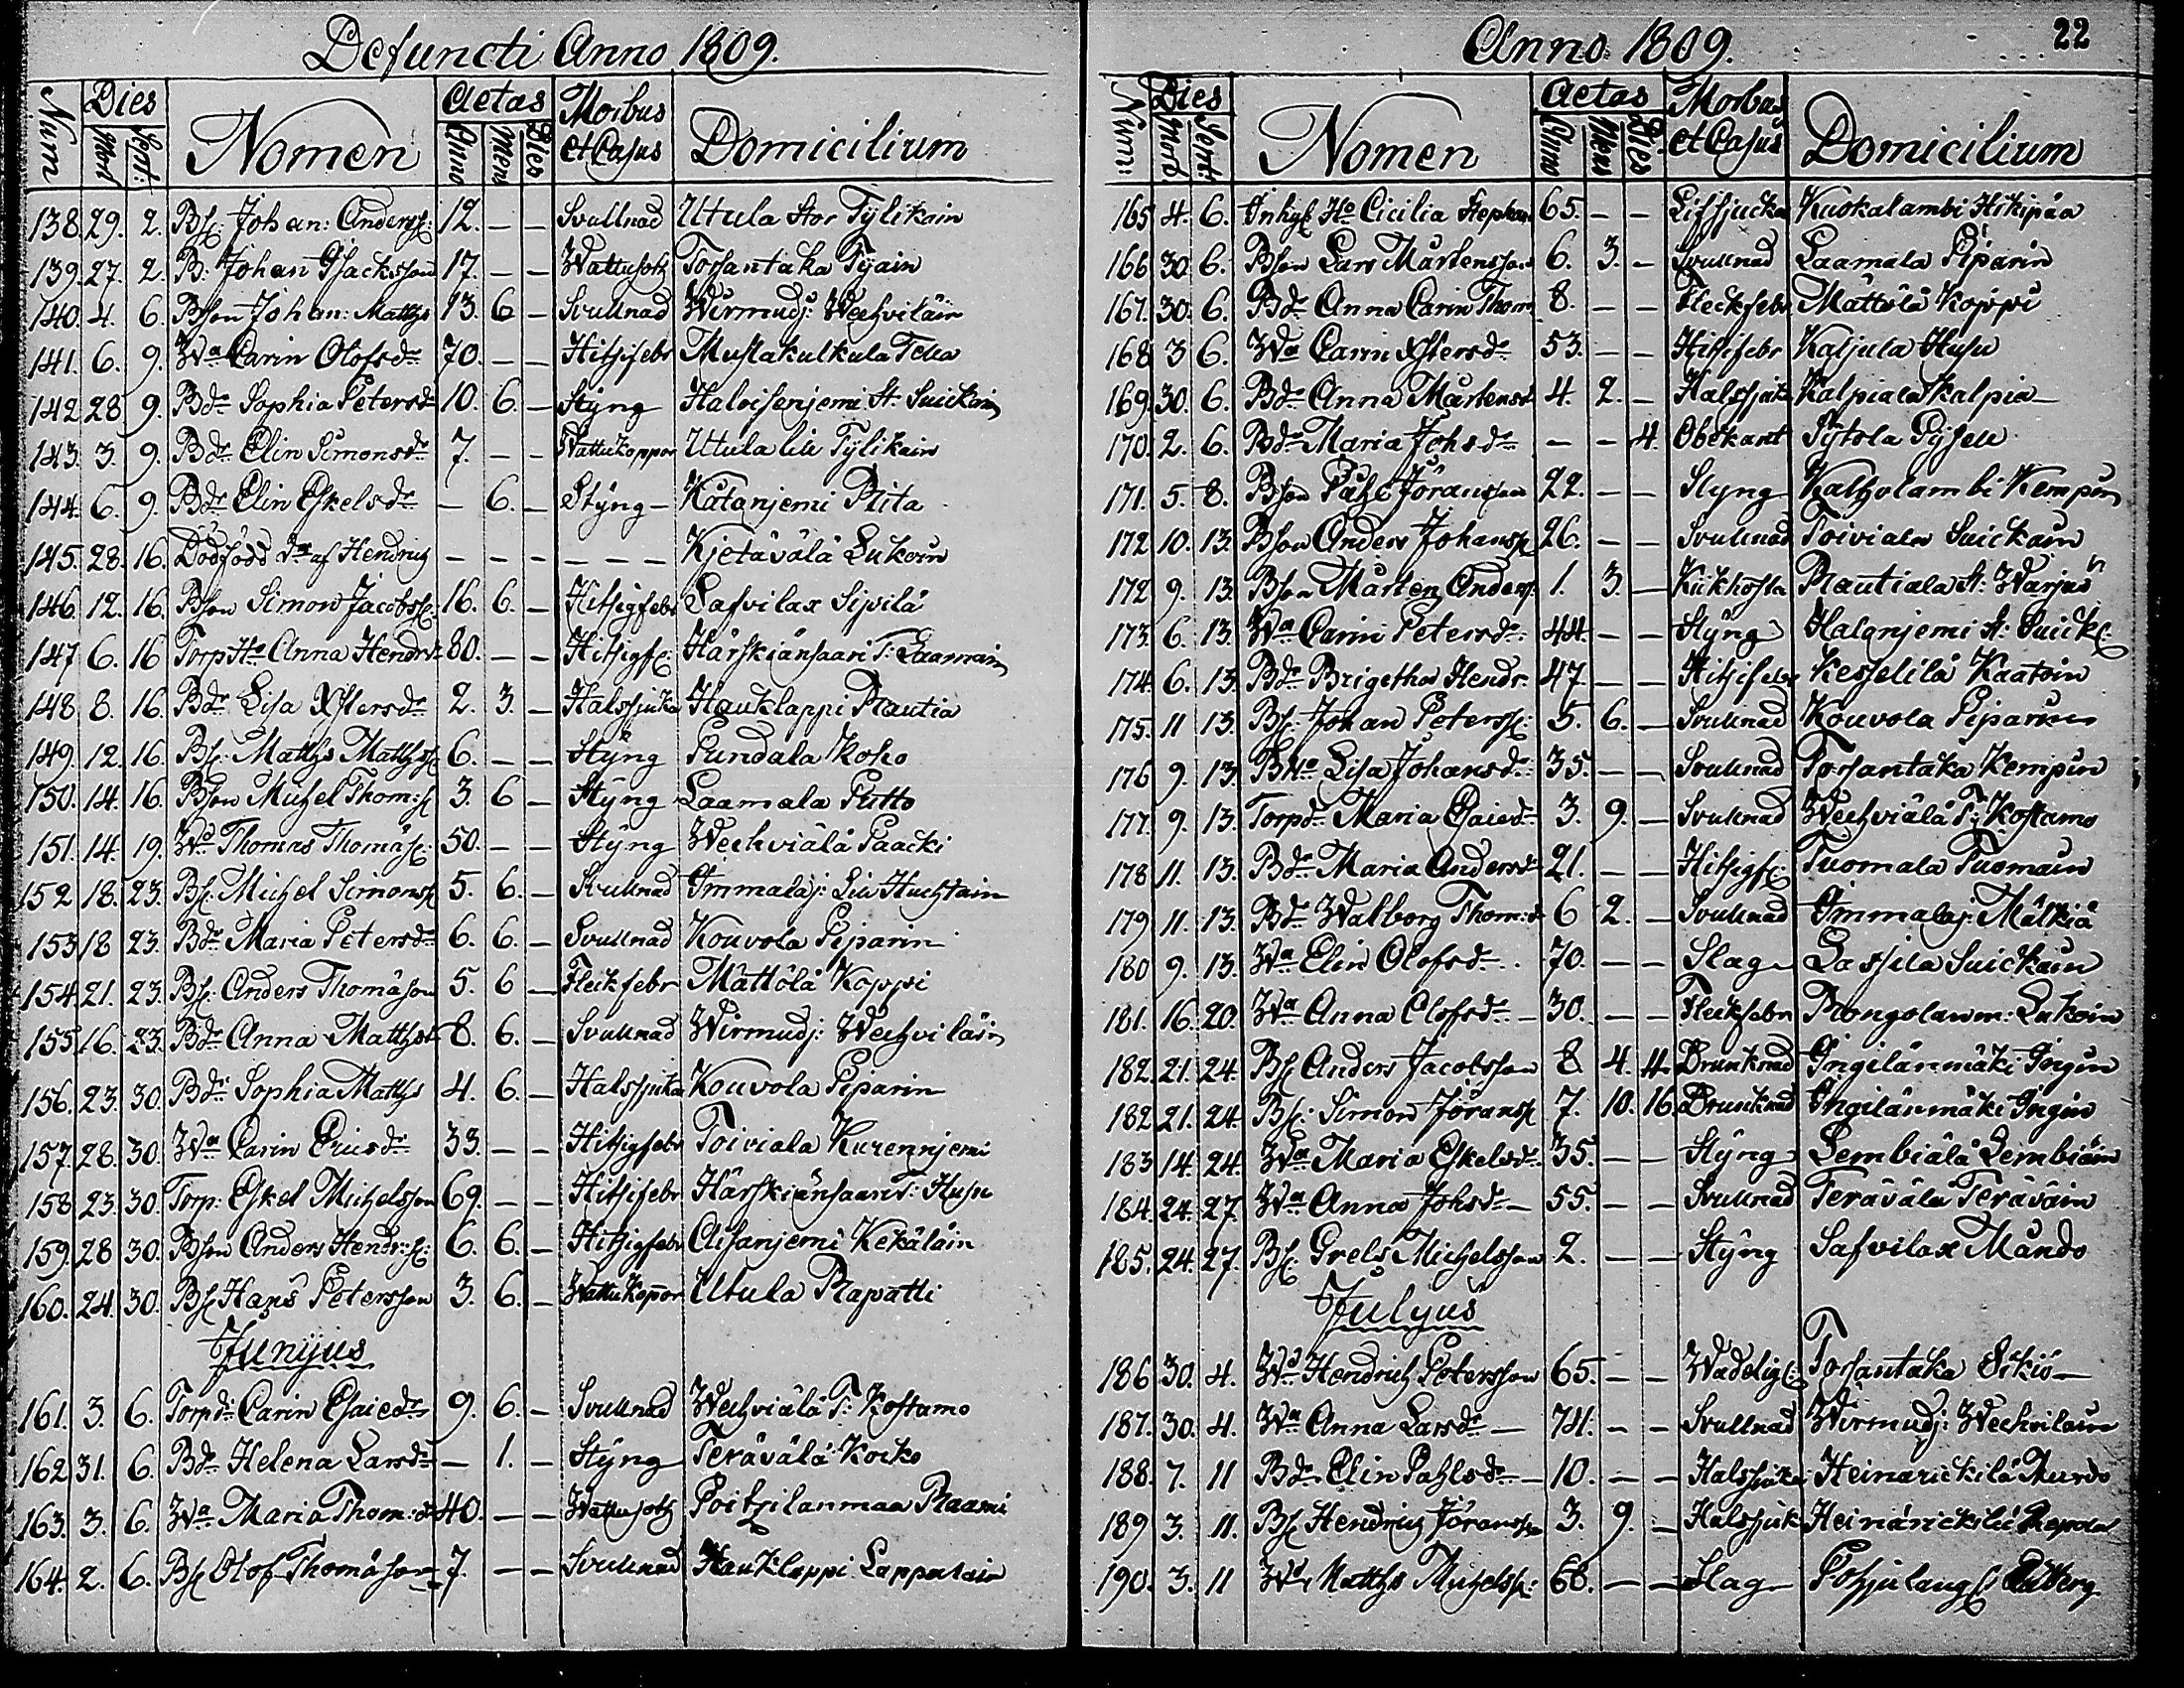 Defuncti Anno 1809.
Num Dies Mort Sept: Nomen Aetas Anno Mens Dies Morbus et Casus Domicilium
138. 29. 2. Bs: Johan: Anderss: 12. — — Svullnad Utula Stor Tylikain
139. 27. 2. B: Johan Isacksson 17. — — Wattusoth Torsantaka Tyäin
140. 4. 6. Bson Johan: Matths 13. 6 — Svullnad Wirmudj: Wechviläin
141. 6. 9. Wa Carin Olofsdr 70. — — Hitsifebr Mustakulkula Tella
142 28 9. Bdr Sophia Petersdr 10. 6. — Styng Haloisenjemi St. Suickain
143. 3. 9. Bdr Elin Simonsdr 7. — — Wattukoppor Utula lill Tylikain
144. 6. 9. Bdr Elin Eskelsdr — 6. — Styng — Kätänjemi Riita
145. 28. 16. Dödfödd dr af Hendrich — — — — — — Kjetävälä Lukoin
146. 12. 16. Bson Simon Jacobss: 16. 6. — Hitsigfebr Lafvilax Sipilä
147 6. 16 Torp Ha Anna Hendrdr 80. — — Hitsigf: Härskiänsaari T: Laamain
148 8. 16. Bdr Lisa Xstersdr 2. 3. — Halssjuka Hauklappi Rautia
149. 12. 16. Bs: Matths Matthss 6. — — Styng Pundala Koho
150. 14. 16. Bson Michel Thom:s 3. 6 — Styng Laamala Putto
151. 14. 19. Wd Thomas Thomæs: 50. — — Styng Wechviälä Paacki
152 18. 23. Bs: Michel Simonss 5. 6. — Svullnad Immalaj: Lill Huchtain
153 18 23. Bdr Maria Petersdr 6. 6. — Svullnad Kouvola Piparin
154. 21. 23. Bs: Anders Thomæson 5. 6 — Fleckfebr Mättölä Koppi
155 16. 23. Bdr Anna Matthsdr 8. 6. — Svullnad Wirmudj: Wechviläin
156. 23. 30. Bdr Sophia Matths 4. 6. — Halssjuka Kouvola Piparin
157. 28. 30. Wa Carin Ericsdr 33. — — Hitsigfebr Toiviala Kurennjemi
158 23. 30. Torp: Eskel Michelsson 69. — — Hitsifebr Härskiänsaari T: Husu
159. 28 30. Bson Anders Hendr:s: 6. 6. — Hitsigfebr Aisanjemi Kekäläin
160. 24. 30. Bs Hans Petersson 3. 6. — Wattukoppor Utula Rapatti
Junijus
161. 3. 6. Torpdr Carin Esaiedr 9. 6. — Svullnad Wechviälä T: Kostamo
162 31. 6. Bdr Helena Larsdr — 1. — Styng Terävälä Koiko
163. 3. 6. Wa Maria Thom:dr 40. — — Wattusoth Poitzilanmaa Raami
164. 2. 6. Bs Olof Thomæson 7. — — Svullnad Hauklappi Lappalain
Anno 1809. 22
Num: Dies Mort Sept: Nomen Aetas Anno Mens Dies Morbus et Casus Domicilium
165 4. 6. Inhys Ha Cicilia Stephan 65. — — Lifsjucka Kuokalambi Hikipää
166 30. 6. Bson Lars Mårtensson 6. 3. — Svullnad Laamala Piparin
167. 30. 6. Bdr Anna Carin Thom 8. — — Fleckfebr Mättölä Koppi
168 3 6. Wa Carin Xstersdr 53. — — Hitsifebr Karjula Husu
169. 30. 6. Bdr Anna Mårtensdr 4. 2. — Halssjuk Kalpiala Kalpia
170. 2. 6. Bdr Maria Johsdr — — 4. Obekant Sytola Pysell
171. 5. 8. Bson Påhl Jöransson 22. — — Styng Kaltzolambi Kempin
172 10. 13. Bson Anders Johanss 26. — — Svullnad Toiviala Suickain
172 9. 13. Bson Mårten Anders 1. 3. — Kikhosta Rautiala St: Warjus
173. 6. 13. Wa Carin Petersdr: 44. — — Styng Halanjemi St: Suick:
174. 6. 13. Bdr Brigetha Hendr: 47. — — Hitsifebr Kesselilä Kaatoin
175. 11 13. Bs: Johan Peterss: 5. 6. — Svullnad Kouvola Piparin
176 9. 13. BHa Lisa Johansdr: 35. — — Svullnad Torsantaka Kempin
177. 9. 13. Torpdr Maria Esaiedr 3. 9. — Svullnad Wechviälä T: Kostamo
178 11. 13. Bdr Maria Andersdr 21. — — Hitsigf: Tuomala Tuomain
179 11. 13. Bdr Walborg Thom:dr 6 2. — Svullnad Immalaj: Mälkiä
180 9. 13. Wa Elin Olofsdr 70. — — Slag Lassila Suickain
181. 16. 20. Wa Anna Olofsdr — 30. — — Fleckfebr Rongolanm: Lukoin
182. 21. 24. Bs Anders Jacobsson 8. 4. 4. Drunknad Ingilänmäki Ingin
182 21. 24. Bs: Simon Jöranss 7. 10. 16 Druncknad Ingilänmäki Ingin
183 14. 24. Wa Maria Eskelsdr 35. — — Styng Lembiälä Lembiäin
184. 24. 27. Wa Anna Johsdr — 55. — — Svullnad Terävälä Teräväin
185. 24. 27. Bs: Grels Michelsson 2. — — Styng Lafvilax Mändo
Julyus
186 30. 4. Wd Hendrich Petersson 65. — — Wådelig: Torsantaka Sikiö —
187. 30. 4. Wa Anna Larsdr — 74. — — Svullnad Wirmudj: Wechvilain
188. 7. 11 Bdr Elin Pahlsdr — 10. — — Halssjuka Heinärickilä Murdo
189 3. 11. Bs Hendrich Jöransson 3. 9. — Halssjuk Heinärickilä
190. 3. 11 Wd Matths Michelss: 66. — — Slag